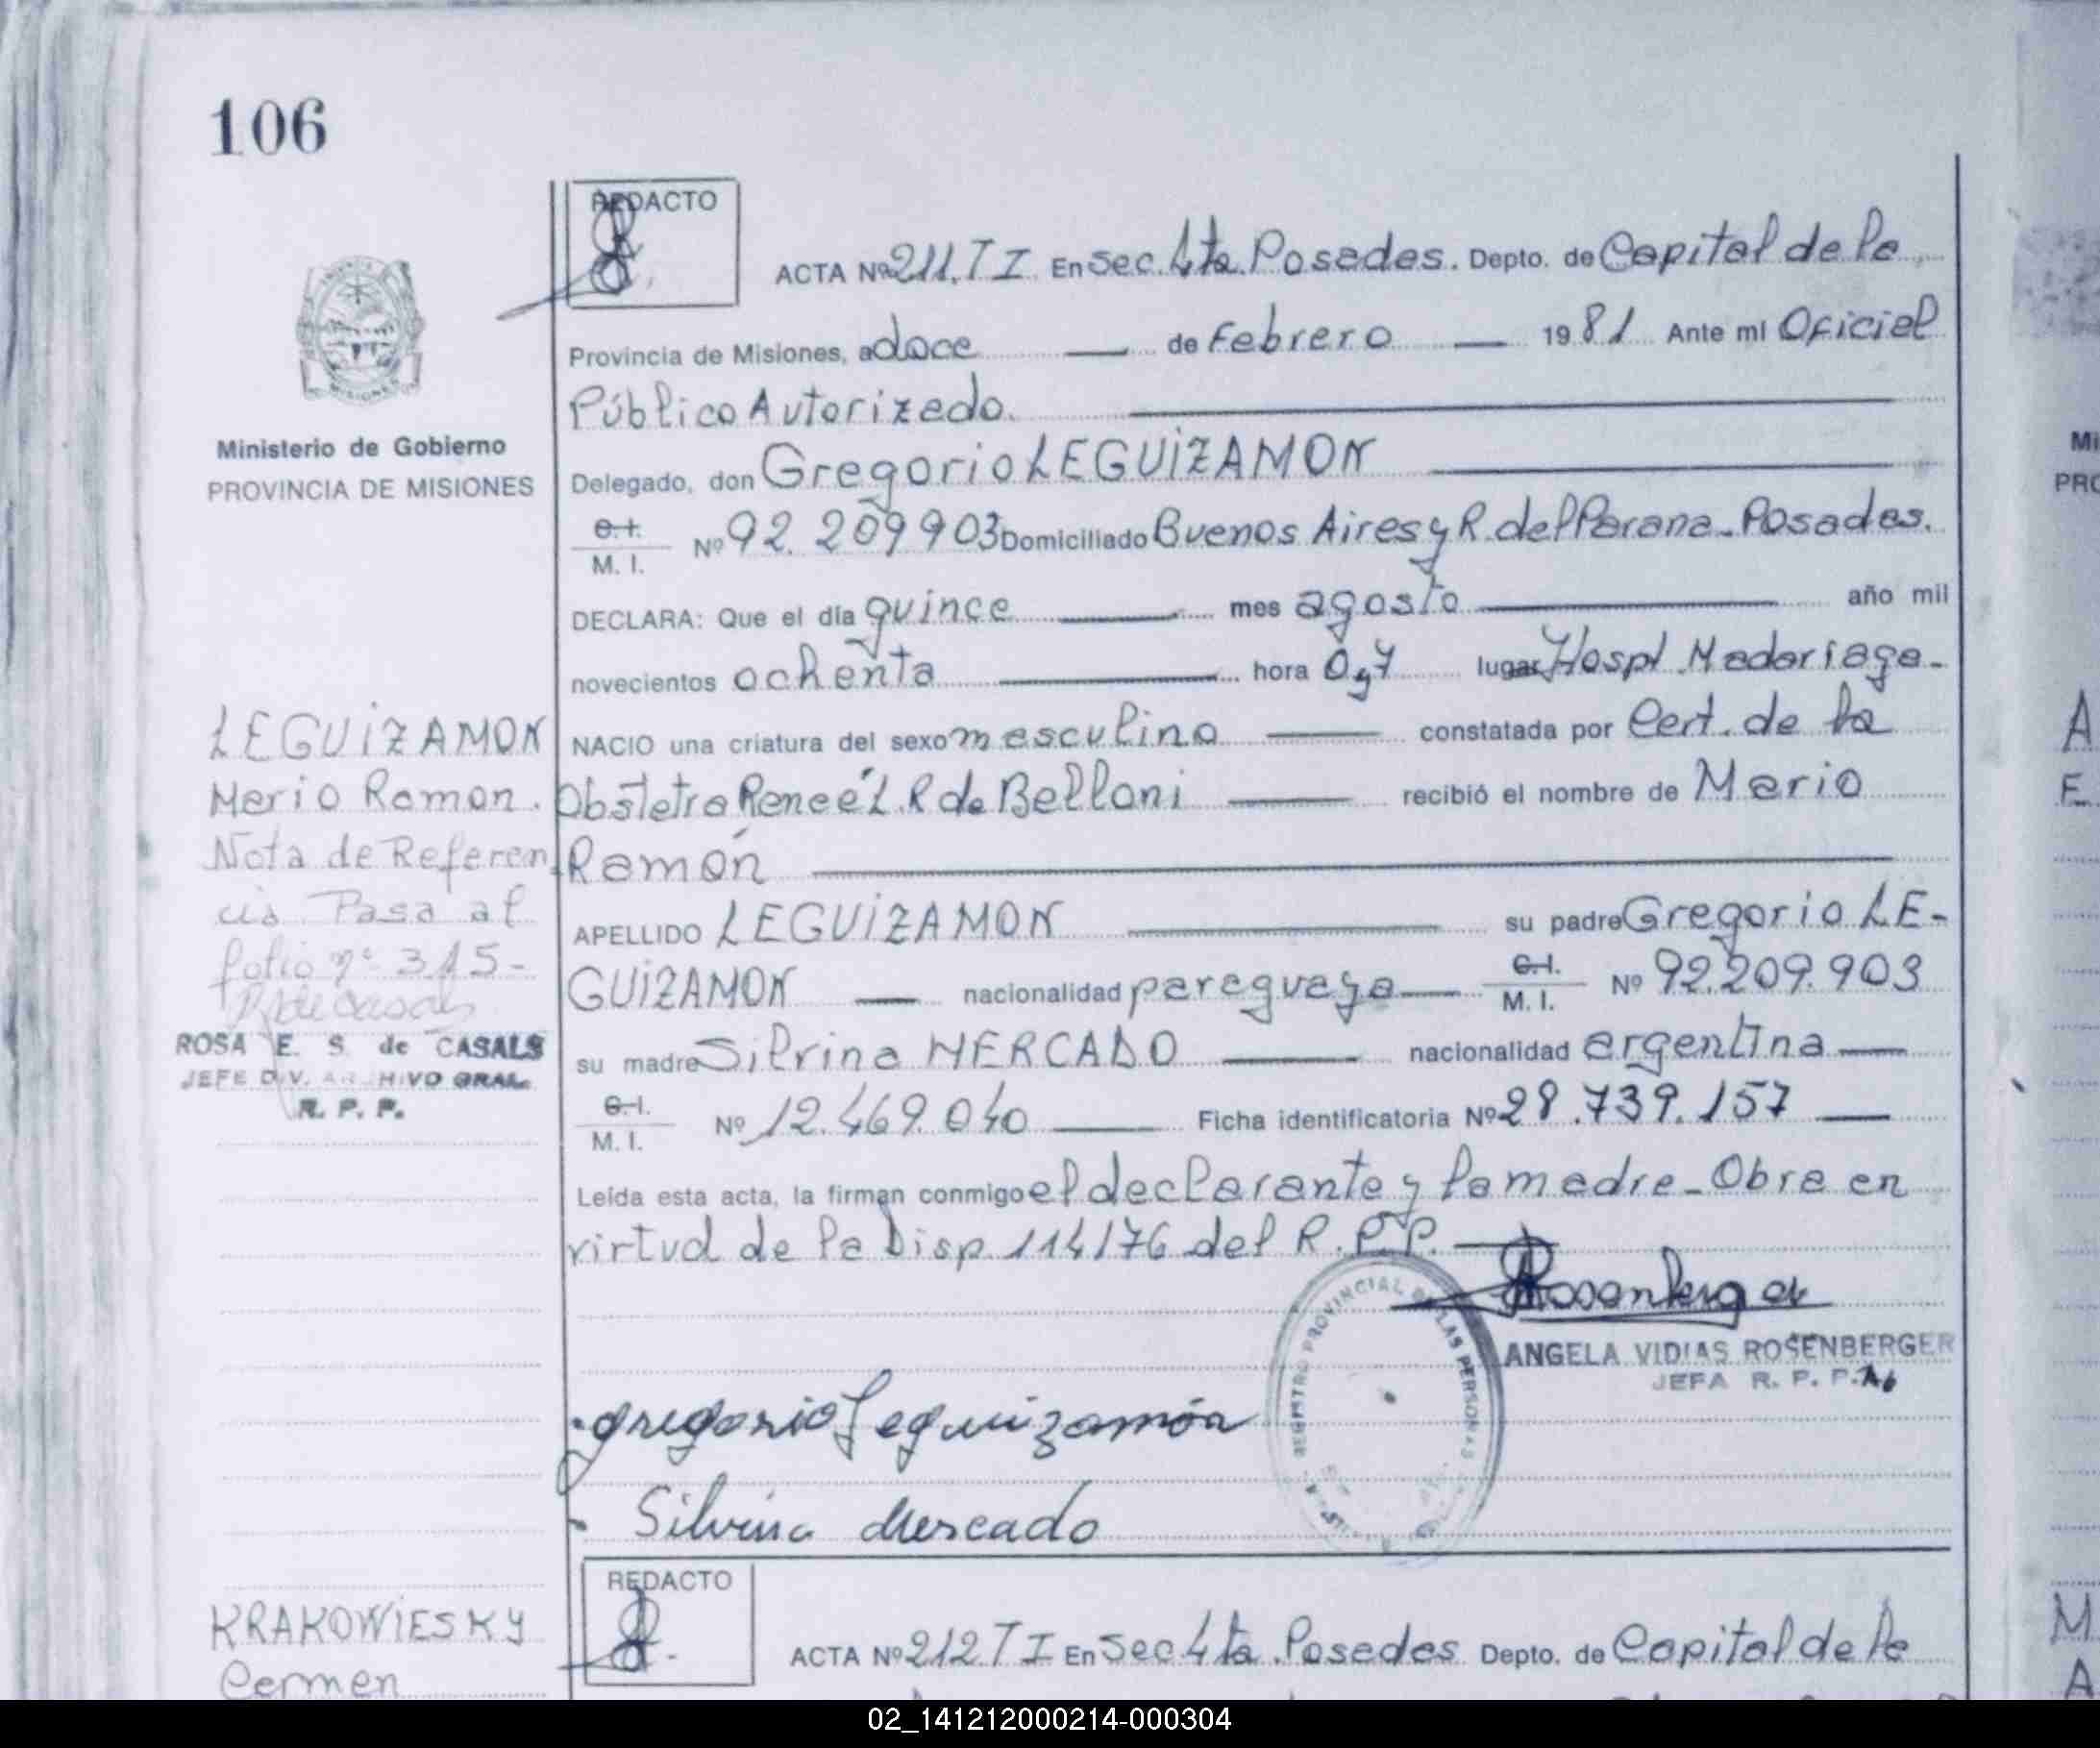 106
REDACTO
ACTA Nº 211. T I En Sec. 4ta. Posadas. Depto. de Capital de la
Provincia de Misiones, a doce de Febrero 1981 Ante mi Oficial
Público Autorizado.
Delegado, don Gregorio LEGUIZAMON
C.I.
M. I. Nº 92.209903 Domiciliado Buenos Aires y R. del Parana - Posadas.
DECLARA: Que el día quince mes agosto año mil
novecientos ochenta hora 0,7 lugar Hospl Madariaga -
NACIO una criatura del sexo masculino constatada por Cert. de la
Obstetra Reneé L. R de Bellani recibió el nombre de Mario
Ramón
APELLIDO LEGUIZAMON su padre Gregorio LE-
GUIZAMON nacionalidad paraguaya C.I.
M. I. Nº 92.209.903
su madre Silvina MERCADO nacionalidad argentina
C.I.
M. I. Nº 12.469.040 Ficha identificatoria Nº 28.739.157
Leída esta acta, la firman conmigo el declarante y la madre - Obra en
virtud de la Disp. 114/76 del R. P. P.
Rosenberger
REGISTRO PROVINCIAL DE LAS PERSONAS
ANGELA VIDIAS ROSENBERGER
JEFA R. P. P.
gregorio Leguizamón
Silvina Mercado
Ministerio de Gobierno
PROVINCIA DE MISIONES
LEGUIZAMON
Mario Ramon.
Nota de Referen
cia Pasa al
folio nº 315-
R de Casals
ROSA E. S. de CASALS
JEFE DIV. ARCHIVO GRAL.
R. P. P.
KRAKOWIESKY
Carmen
REDACTO
ACTA Nº 212 T I En Sec 4ta. Posadas Depto. de Capital de la
Mi
PRO
A
F
M
A
02_141212000214-000304